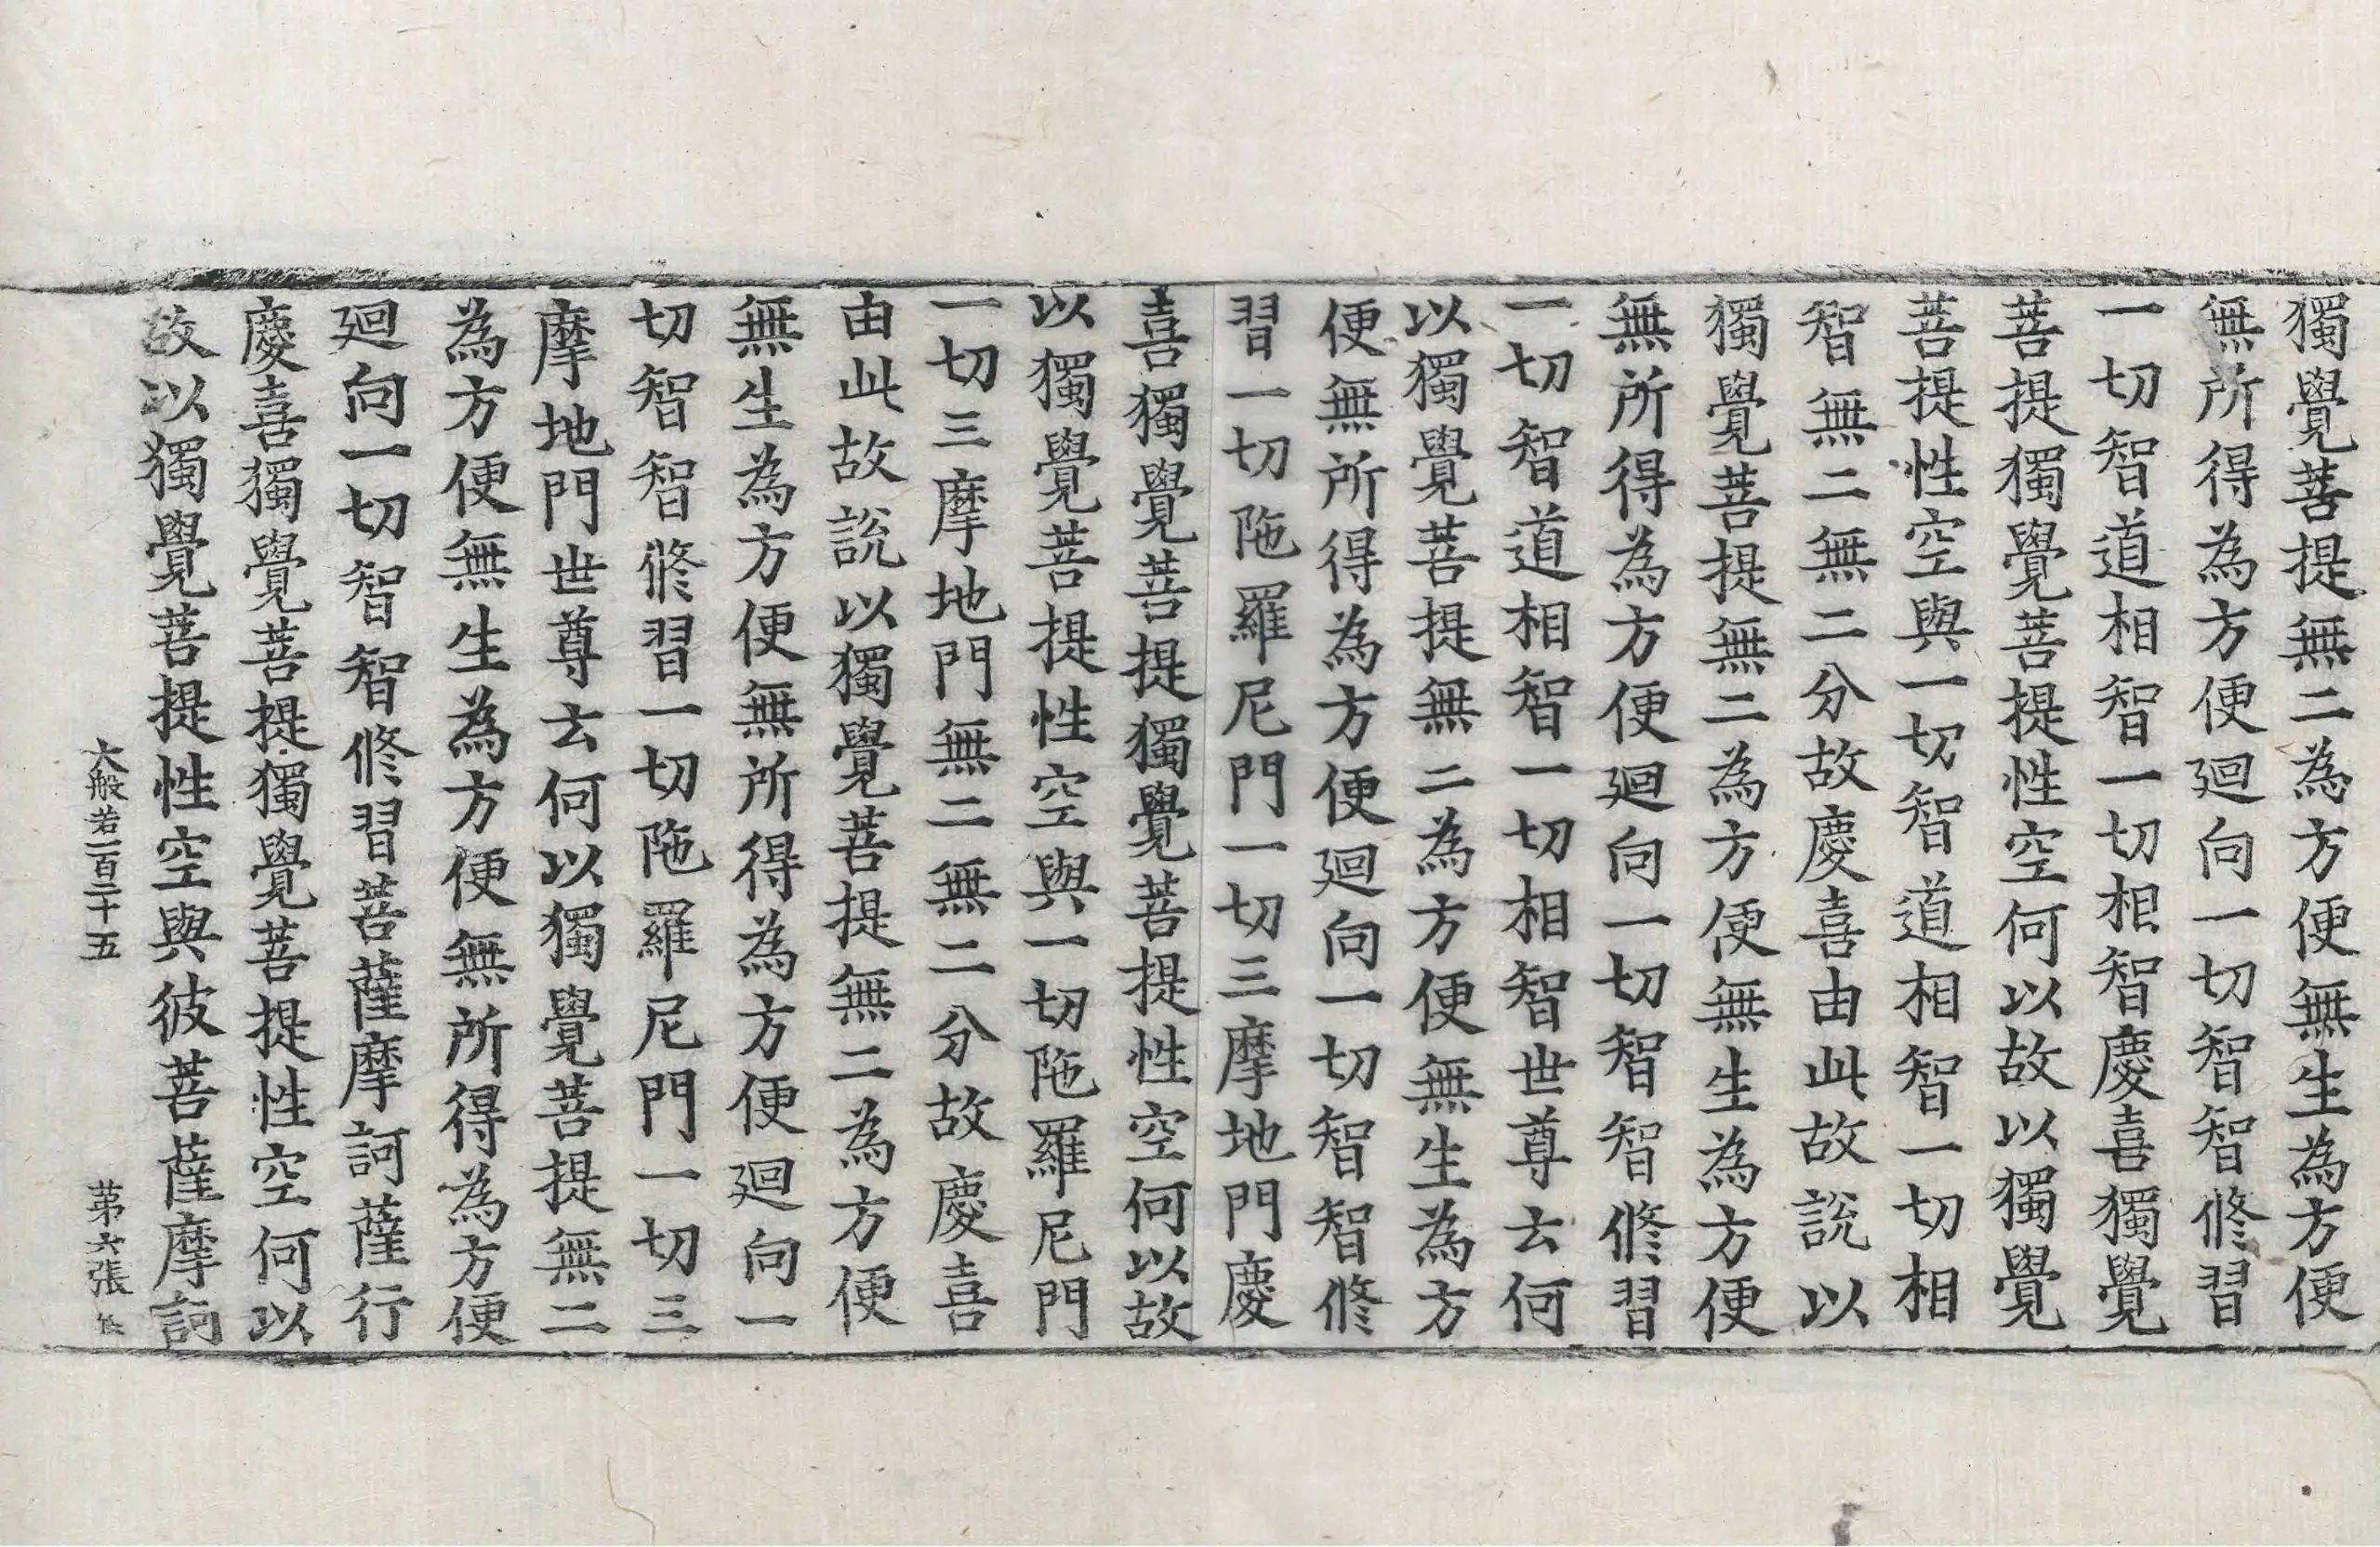 獨覺菩提無二為方便無生為方便
無所得為方便廻向一切智智修習
一切智道相智一切相智慶喜獨覺
菩提獨覺菩提性空何以故以獨覺
菩提性空與一切智道相智一切相
智無二無二分故慶喜由此故說以
獨覺菩提無二為方便無生為方便
無所得為方便廻向一切智智修習
一切智道相智一切相智世尊云何
以獨覺菩提無二為方便無生為方
便無所得為方便廻向一切智智修
習一切陁羅尼門一切三摩地門慶
喜獨覺菩提獨覺菩提性空何以故
以獨覺菩提性空與一切陁羅尼門
一切三摩地門無二無二分故慶喜
由此故說以獨覺菩提無二為方便
無生為方便無所得為方便廻向一
切智智修習一切陁羅尼門一切三
摩地門世尊云何以獨覺菩提無二
為方便無生為方便無所得為方便
廻向一切智智修習菩薩摩訶薩行
慶喜獨覺菩提獨覺菩提性空何以
故以獨覺菩提性空與彼菩薩摩訶
大般若一百二十五 第六張